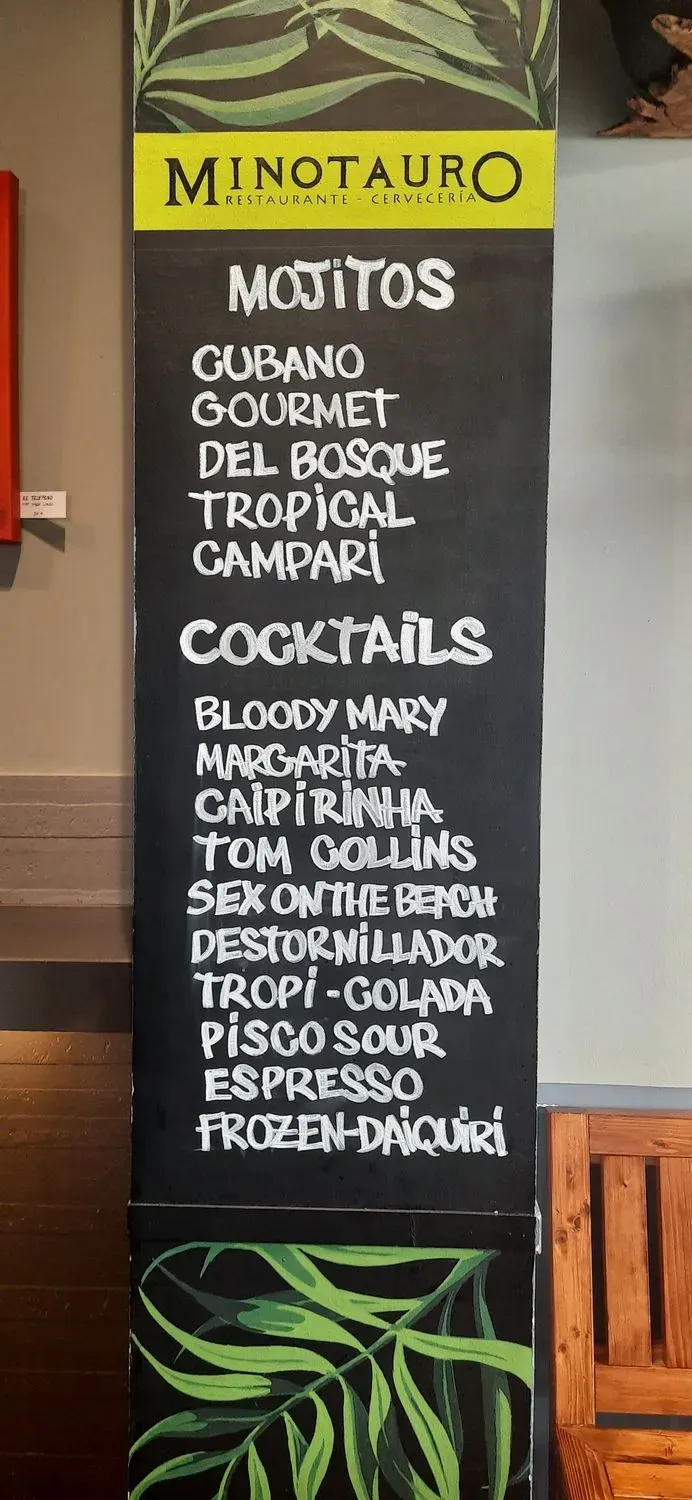 MINOTAURO
RESTAURANTE - CERVECERÍA
MOJiTOS
CUBANO
GOURMET
DEL BOSQUE
TROPiCAL
CAMPARi
COCKTAiLS
BLOODY MARY
MARGARiTA
CAiPiRiNHA
TOM COLLiNS
SEX ON THE BEACH
DESTORNiLLADOR
TROPi-COLADA
PiSCO SOUR
ESPRESSO
FROZEN-DAiQUiRí